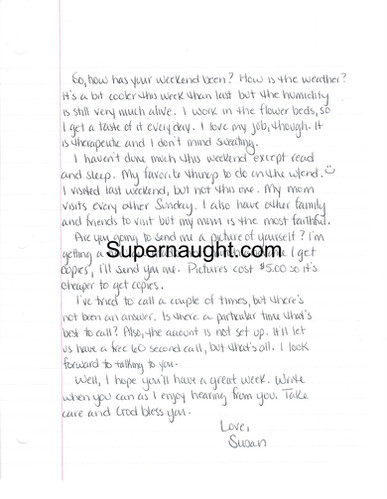 So, how has your weekend been? How is the weather?
It's a bit cooler this week than last but the humidity
is still very much alive. I work in the flower beds, so
I get a taste of it every day. I love my job, though. It
is therapeutic and I don't mind sweating.
I haven't done much this weekend except read
and sleep. My favorite things to do on the w/end. ☺
I visited last weekend, but not this one. My mom
visits every other Sunday. I also have other family
and friends to visit but my mom is the most faithful.
Are you going to send me a picture of yourself? I'm
getting a
I get
Supernaught.com
copies, I'll send you one. Pictures cost $5.00 so it's
cheaper to get copies.
I've tried to call a couple of times, but there's
not been an answer. Is there a particular time that's
best to call? Also, the account is not set up. It'll let
us have a free 60 second call, but that's all. I look
forward to talking to you.
Well, I hope you'll have a great week. Write
when you can as I enjoy hearing from you. Take
care and God bless you.
Love,
Susan